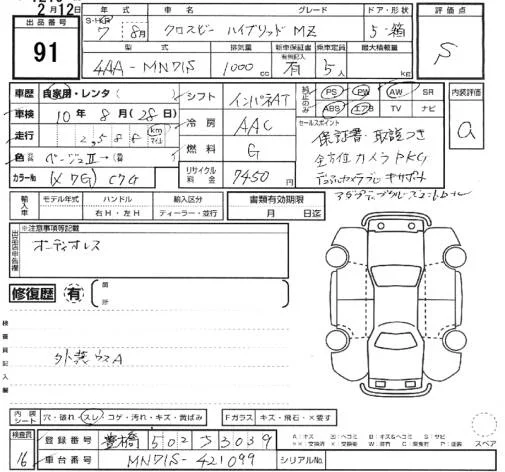 2月12日
出品番号
91
年式 車名 グレード ドア・形状
S・H・R 7年 8月 クロスビー ハイブリッド MZ 5 箱
型式 排気量 新車保証書 乗車定員 最大積載量
有無記入
4AA-MN71S 1000cc 有 5人 kg
評価点
S
車歴 自家用・レンタ
車検 10年 8月(28日)
走行 2,588 km マイル
色 ベージュⅡ→(替)
カラーNo (X7G) C7G
シフト インパネAT
冷房 AAC
燃料 G
リサイクル料金 7450円
純正のみ PS PW AW SR
ABS エアB TV ナビ
セールスポイント
保証書・取説つき
全方位カメラPKG
デュアルカメラブレーキサポート
内装評価
a
輸入車 モデル年式 ハンドル 輸入区分 書類有効期限
右H・左H ディーラー・並行 月 日迄
出品店申告欄 ※注意事項等記載
オーディオレス
修復歴 有 箇所
検査員記入欄
外装ウスA
内装シート 穴・破れ・スレ・コゲ・汚れ・キズ・黄ばみ Fガラス キズ・飛石・×要す
検査員 16
登録番号 豊橋 502 す 3039
車台番号 MN71S-421099 シリアルNo.
スペア